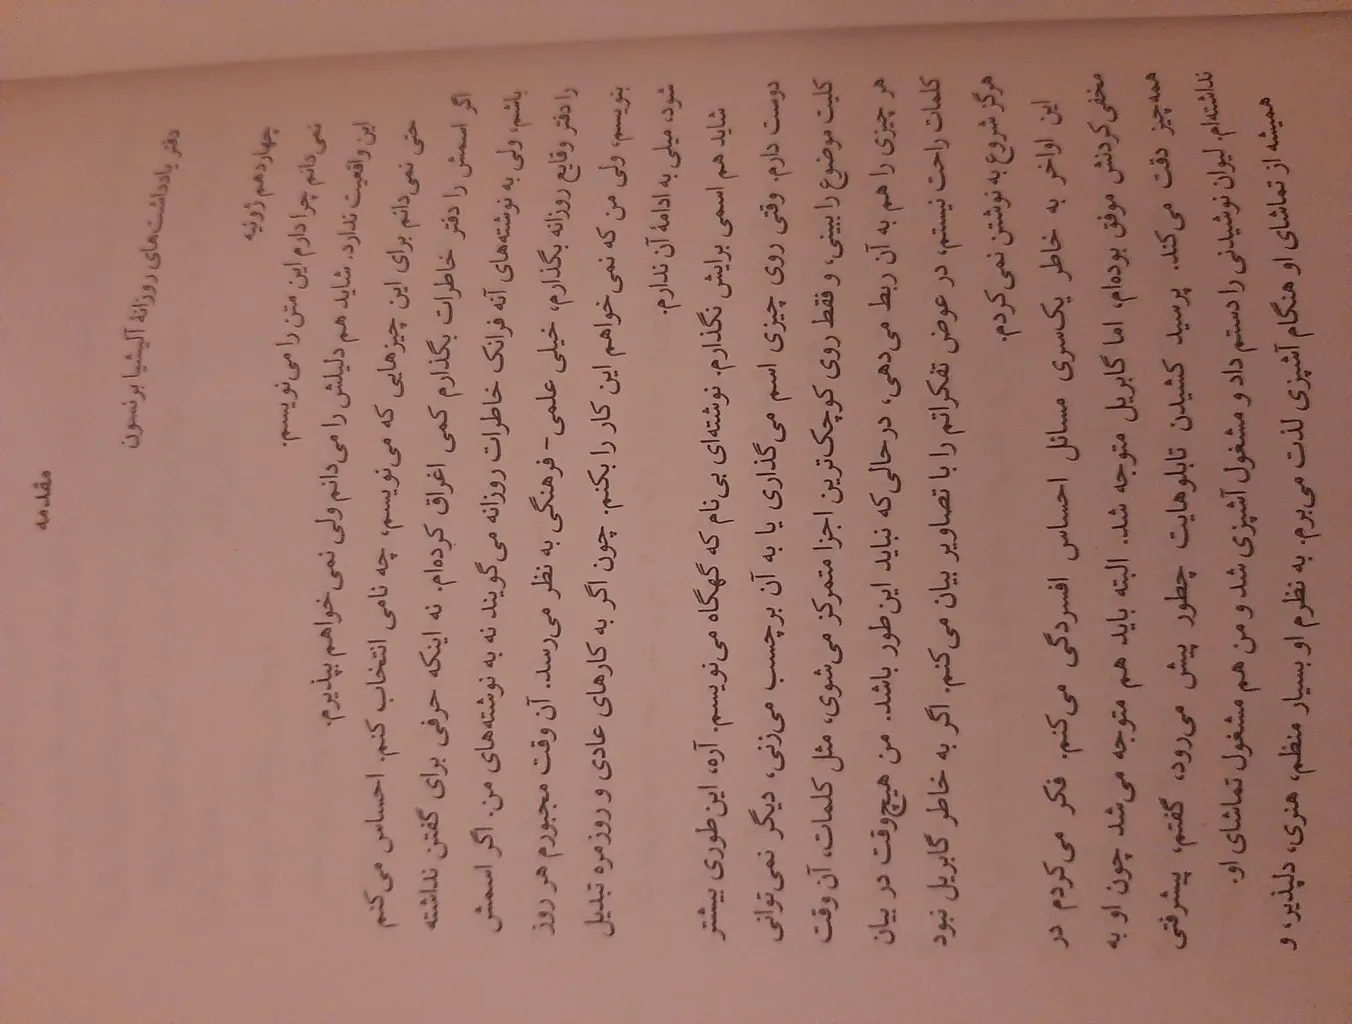 مقدمه
دفتر یادداشت‌های روزانهٔ آلیشیا برنسون
چهاردهم ژوئیه
نمی‌دانم چرا دارم این متن را می‌نویسم.
این واقعیت ندارد. شاید هم دلیلش را می‌دانم ولی نمی‌خواهم بپذیرم.
حتی نمی‌دانم برای این چیزهایی که می‌نویسم، چه نامی انتخاب کنم. احساس می‌کنم
اگر اسمش را دفتر خاطرات بگذارم کمی اغراق کرده‌ام. نه اینکه حرفی برای گفتن نداشته
باشم، ولی به نوشته‌های آنه فرانک خاطرات روزانه می‌گویند نه به نوشته‌های من. اگر اسمش
را دفتر وقایع روزانه بگذارم، خیلی علمی- فرهنگی به نظر می‌رسد. آن وقت مجبورم هر روز
بنویسم، ولی من که نمی‌خواهم این کار را بکنم. چون اگر به کارهای عادی و روزمره تبدیل
شود، میلی به ادامهٔ آن ندارم.
شاید هم اسمی برایش نگذارم. نوشته‌ای بی‌نام که گهگاه می‌نویسم. آره، این‌طوری بیشتر
دوست دارم. وقتی روی چیزی اسم می‌گذاری یا به آن برچسب می‌زنی، دیگر نمی‌توانی
کلیت موضوع را ببینی، و فقط روی کوچک‌ترین اجزا متمرکز می‌شوی، مثل کلمات، آن وقت
هر چیزی را هم به آن ربط می‌دهی، درحالی‌که نباید این‌طور باشد. من هیچ‌وقت در بیان
کلمات راحت نیستم، در عوض تفکراتم را با تصاویر بیان می‌کنم. اگر به خاطر گابریل نبود
هرگز شروع به نوشتن نمی‌کردم.
این اواخر به خاطر یک‌سری مسائل احساس افسردگی می‌کنم. فکر می‌کردم در
مخفی کردنش موفق بوده‌ام، اما گابریل متوجه شد. البته باید هم متوجه می‌شد چون او به
همه‌چیز دقت می‌کند. پرسید کشیدن تابلوهایت چطور پیش می‌رود، گفتم، پیشرفتی
نداشته‌ام. لیوان نوشیدنی را دستم داد و مشغول آشپزی شد و من هم مشغول تماشای او.
همیشه از تماشای او هنگام آشپزی لذت می‌برم. به نظرم او بسیار منظم، هنری، دلپذیر، و